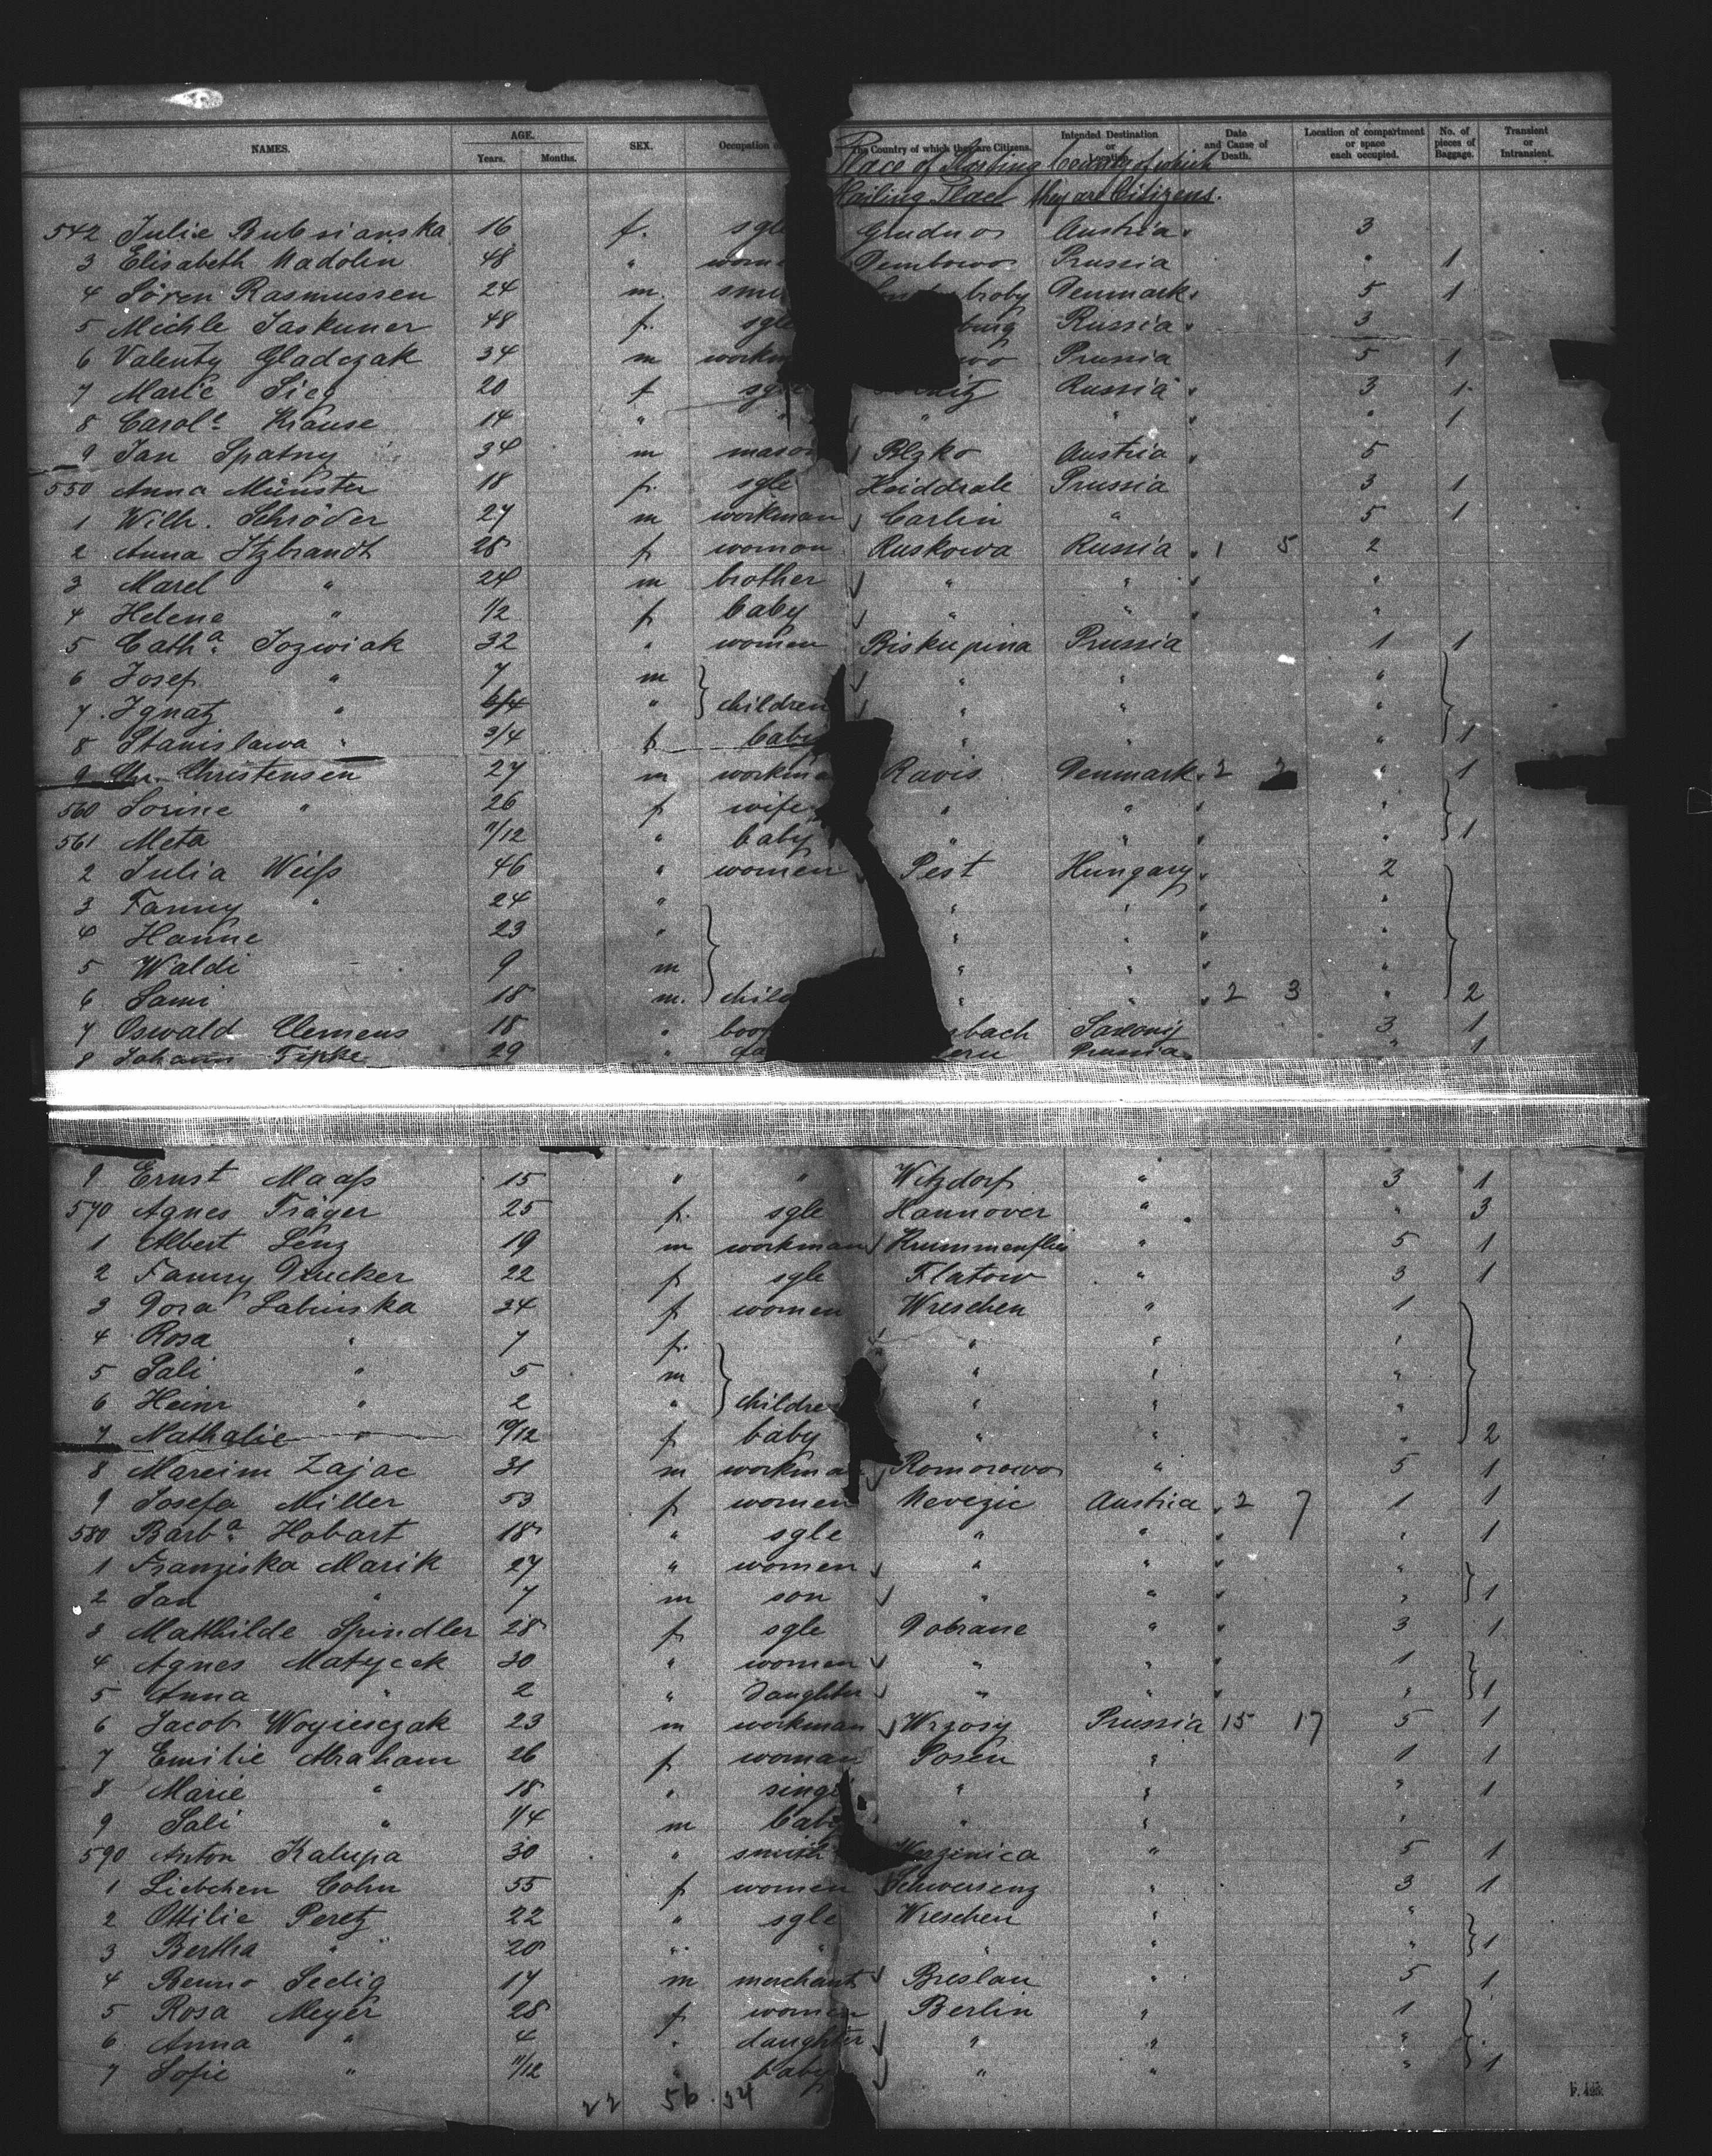 NAMES. AGE. Years. Months. SEX. Occupation The Country of which they are Citizens. Intended Destination or Date and Cause of Death. Location of compartment or space each occupied. No. of pieces of Baggage. Transient or Intransient.
Place of Country of which
Hailing Place they are Citizens.
542 Julie Bubsianska 16 f. sgl Austria 3
3 Elisabeth Madolin 48 " wom Dembowo Prussia " 1
4 Sören Rasmussen 24 m. smi broby Denmark 5 1
5 Michle Jaskuner 48 f. sgle burg Russia 3
6 Valenty Gladczak 34 m workm wo Prussia 5 1
7 Marie Sieg 20 f sgle nitz Russia 3 1
8 Carole Krause 14 " " " " " 1
9 Jan Spatny 34 m mason Blzko Austria 5
550 Anna Münster 18 f. sgle Heiddrale Prussia 3 1
1 Wilh. Schröder 27 m workman Carlin " 5 1
2 Anna Itzbrandt 28 f woman Ruskowa Russia 1 5 2
3 Marel " 24 m brother " " "
4 Helene " 1/2 f baby " " "
5 Catha. Jozwiak 32 " women Biskupina Prussia 1 1
6 Josef " 7 m " " "
7 Ignatz " 6/4 " children " " "
8 Stanislawa " 3/4 f baby " " " 1
9 Chr. Christensen 27 m workma Ravis Denmark 2 2 " 1
560 Sorine " 26 f wife " " "
561 Meta 11/12 " baby " " " 1
2 Julia Weifs 46 " women Pest Hungary 2
3 Fanny " 24 " " " "
4 Hanne 23 " " " "
5 Waldi 9 m " " "
6 Sami 18 m. child " " 2 3 " 2
7 Oswald Clemens 18 " boo bach Saxony 3 1
8 Johann Tipke 29 " ern Prussia " 1
9 Ernst Maafs 15 " " Witzdorf " 3 1
570 Agnes Träger 25 f. sgle Hannover " " 3
1 Albert Lenz 19 m workman Krummenflies " 5 1
2 Fanny Drucker 22 f sgle Flatow " 3 1
3 Dora Labinska 34 f women Wreschen " 1
4 Rosa " 7 f. " " "
5 Sali " 5 m " " "
6 Heinr " 2 " childre " " "
7 Nathalie " 10/12 f baby " " " 2
8 Mareim Zajac 31 m workma Romorowo " 5 1
9 Josefa Miller 53 f women Nevezic Austria 2 7 1 1
580 Barba. Hobart 18 " sgle " " " 1
1 Franziska Marik 27 " women " " "
2 Jan " 7 m son " " " 1
3 Mathilde Spindler 28 f sgle Dobrane " 3 1
4 Agnes Matycek 30 " women " " 1
5 Anna " 2 " daughter " " " 1
6 Jacob Woyiesczak 23 m workman Wrzosy Prussia 15 17 5 1
7 Emilie Abraham 26 f woman Posen " 1 1
8 Marie " 18 " singl " " " 1
9 Sali " 1/4 m bab " " "
590 Anton Kalupa 30 " smith " 5 1
1 Liebchen Cohn 55 f women Schwersenz " 3 1
2 Ottilie Peretz 22 " sgle Wreschen " "
3 Bertha " 20 " " " " " 1
4 Benno Seelig 17 m merchant Breslau " 5 1
5 Rosa Meyer 28 f women Berlin " 1
6 Anna " 4 " daughter " " "
7 Sofie " 11/12 " baby " " " 1
22 56 34